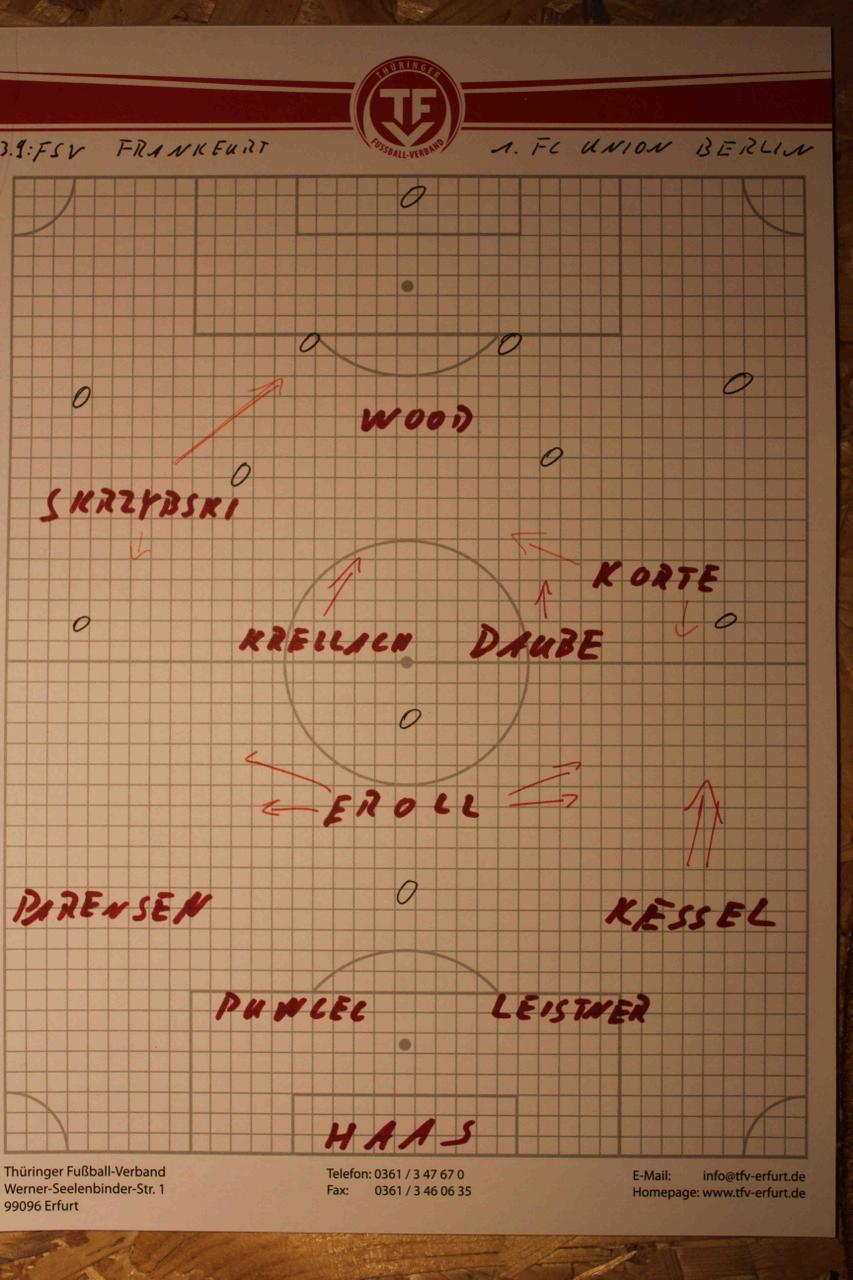 THÜRINGER
TF
FUSSBALL-VERBAND
3.9:FSV FRANKFURT 1. FC UNION BERLIN
WOOD
SKRZYBSKI
KORTE
KRELLACH DAUBE
EROLL
PARENSEN KESSEL
PUNCEC LEISTNER
HAAS
Thüringer Fußball-Verband Telefon: 0361 / 3 47 67 0 E-Mail: info@tfv-erfurt.de
Werner-Seelenbinder-Str. 1 Fax: 0361 / 3 46 06 35 Homepage: www.tfv-erfurt.de
99096 Erfurt